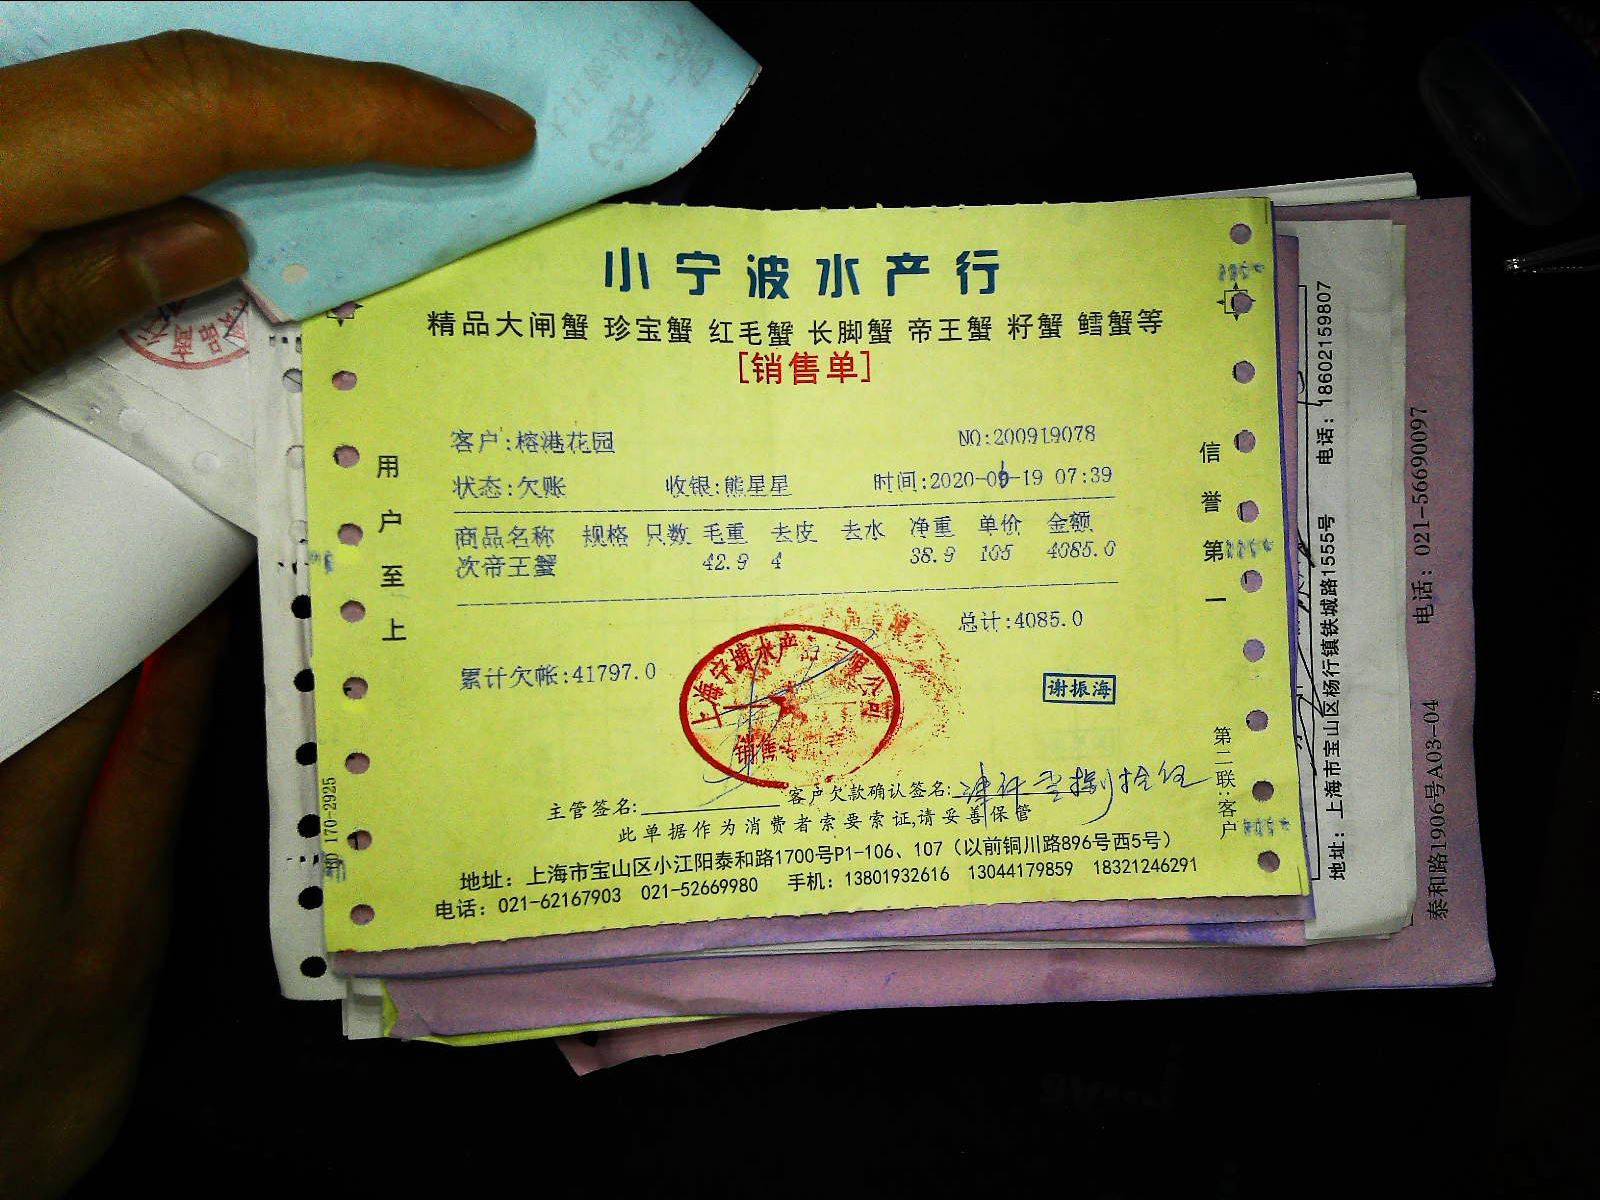 小宁波水产行
精品大闸蟹 珍宝蟹 红毛蟹 长脚蟹 帝王蟹 籽蟹 鳕蟹等
[销售单]
客户:榕港花园 NO:200919078
状态:欠账 收银:熊星星 时间:2020-09-19 07:39
商品名称 规格 只数 毛重 去皮 去水 净重 单价 金额
次帝王蟹 42.9 4 38.9 105 4085.0
总计:4085.0
累计欠帐:41797.0
谢振海
主管签名: 客户欠款确认签名:
此单据作为消费者索要索证,请妥善保管
地址：上海市宝山区小江阳泰和路1700号P1-106、107（以前铜川路896号西5号）
电话：021-62167903 021-52669980 手机：13801932616 13044179859 18321246291
用户至上
信誉第一
第二联:客户
170-2925
地址：上海市宝山区杨行镇铁城路1555号 电话：18602159807
泰和路1906号A03-04 电话：021-56690097